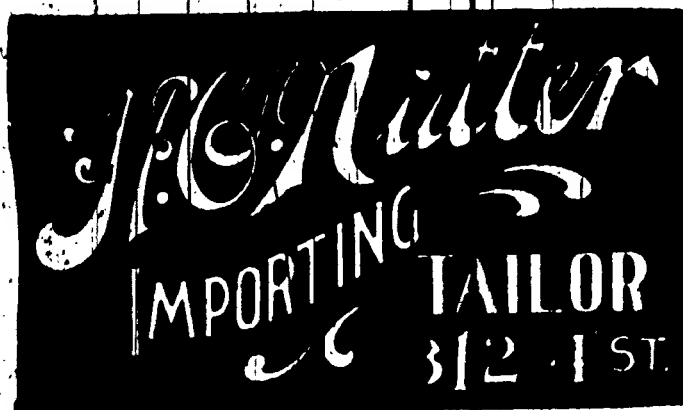 H.C. Nutter
IMPORTING
TAILOR
312 ST.